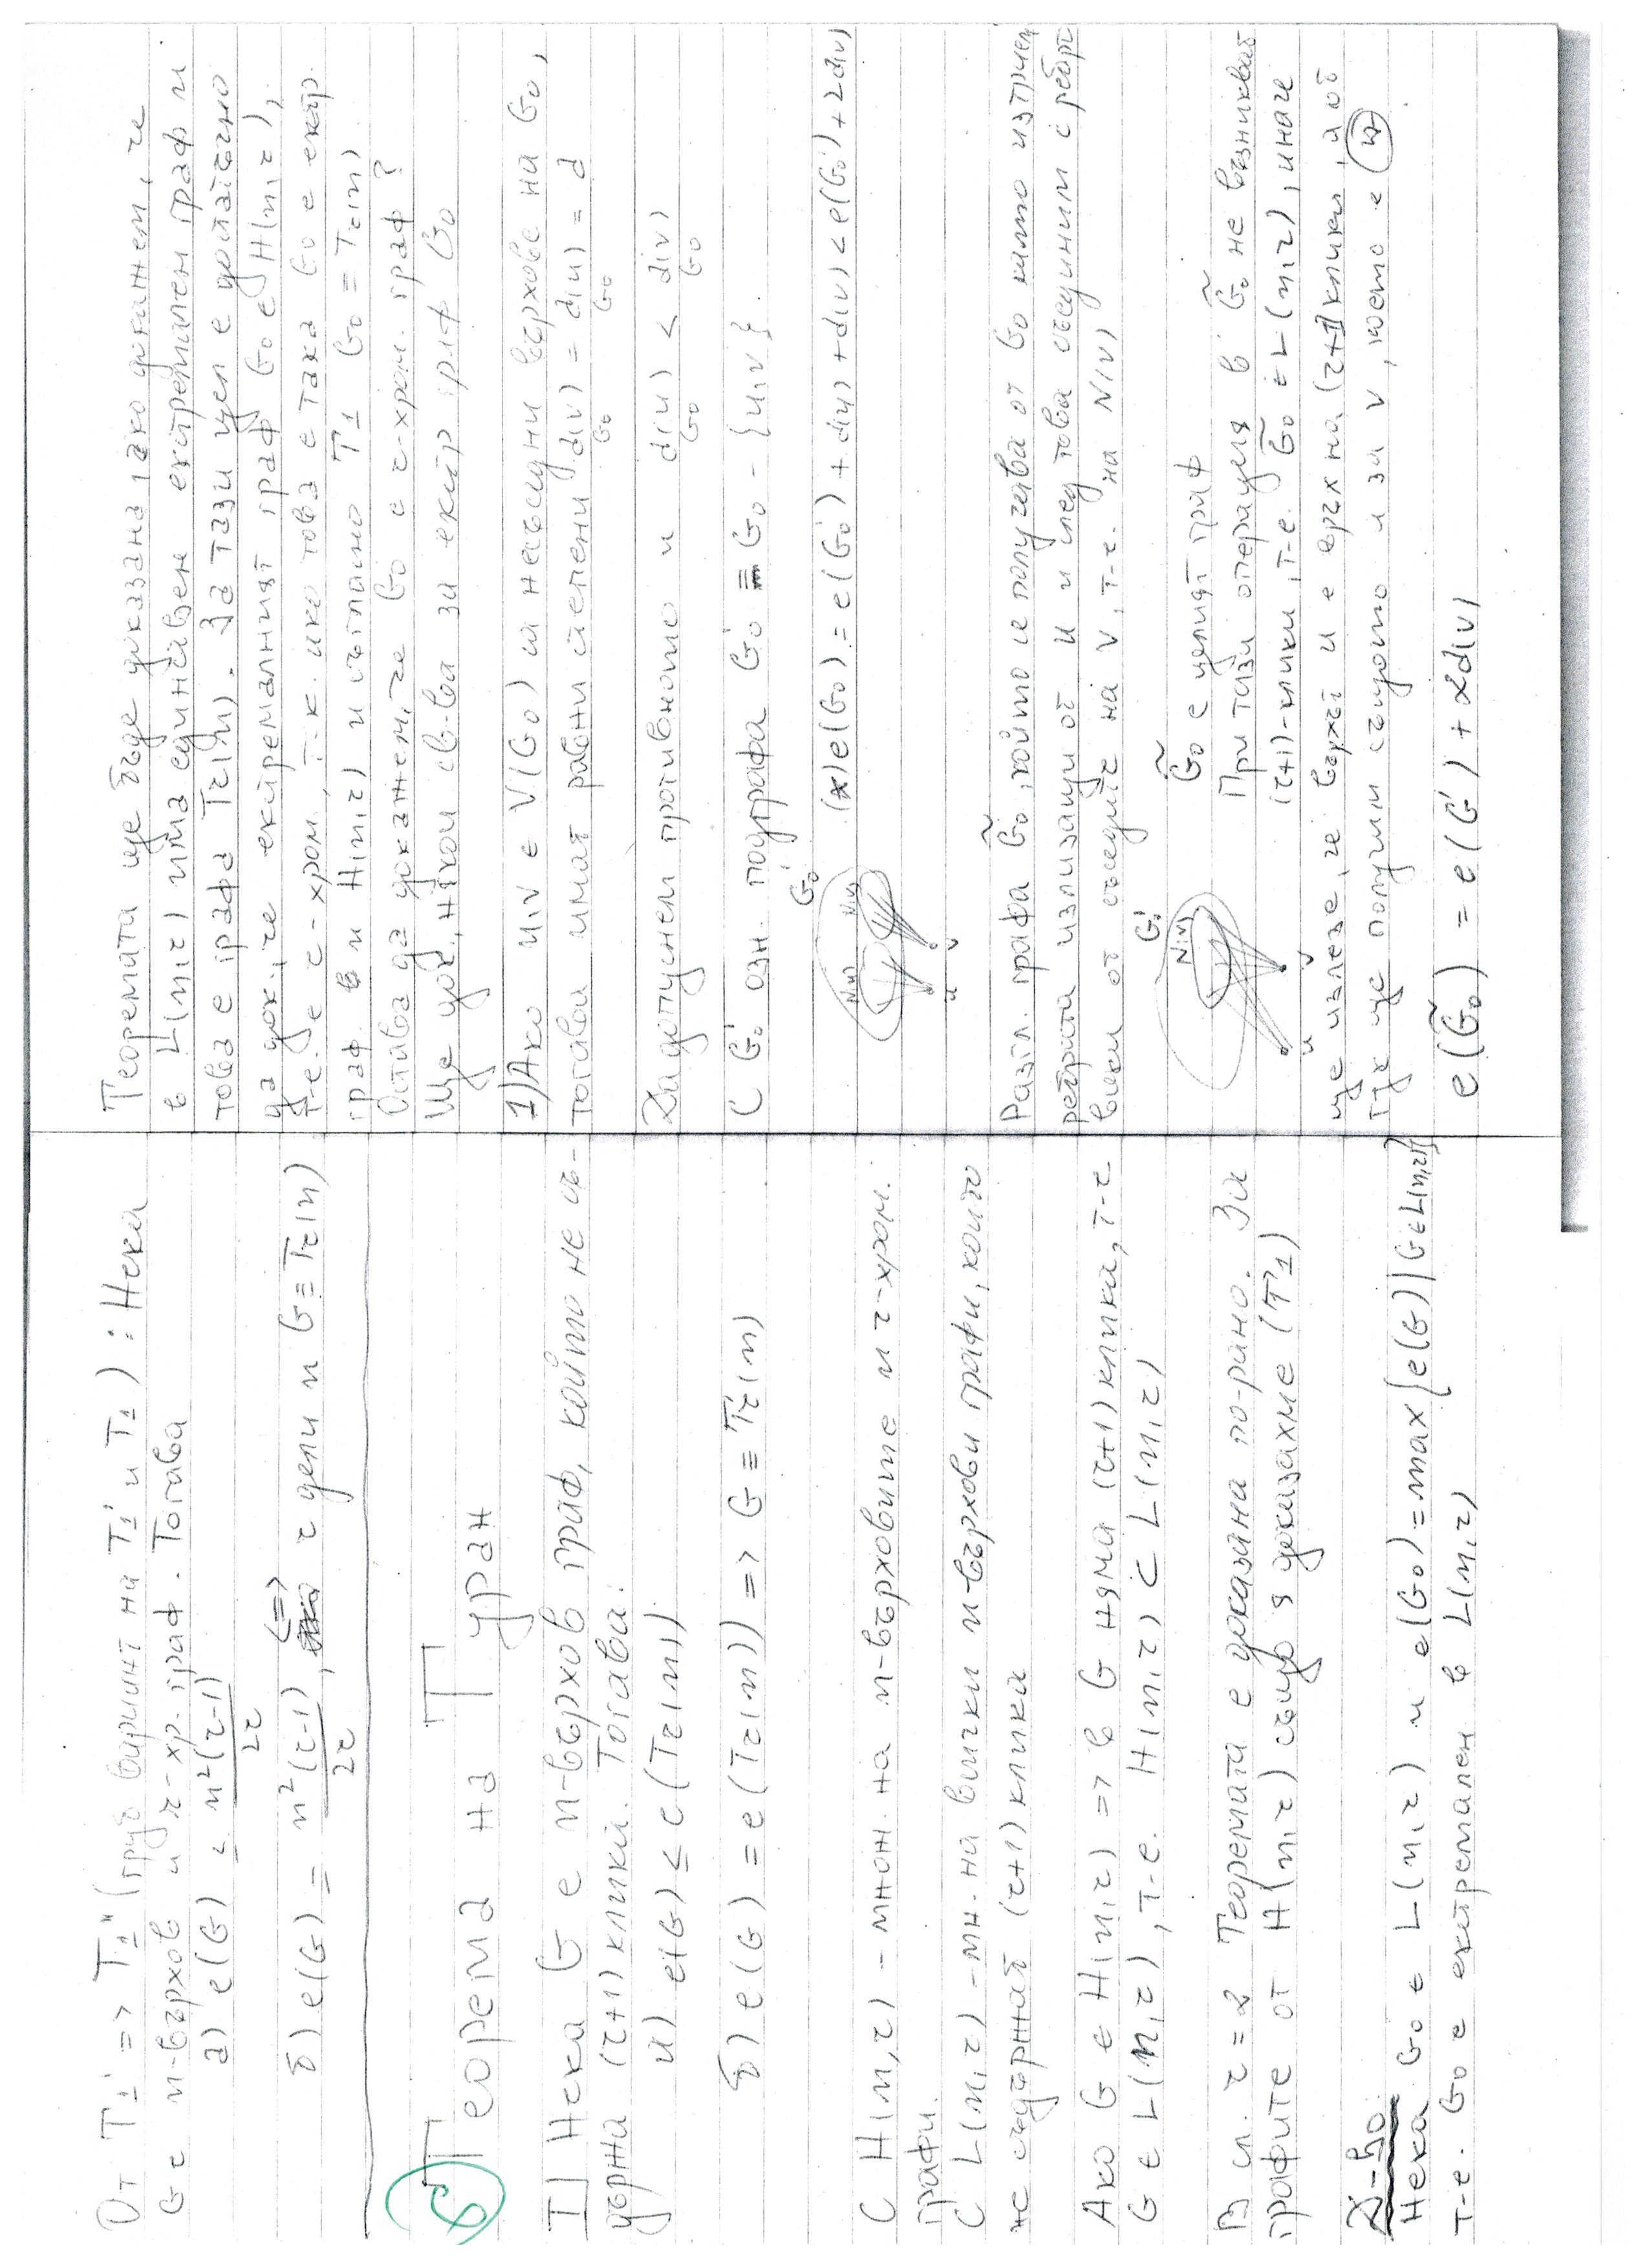 От Т1' => Т1" (груб вариант на Т1' и Т1): Нека
G е n-върхов и r-хр. граф. Тогава
а) e(G) ≤ n²(r-1)/2r
б) e(G) = n²(r-1)/2r, <=> r дели n и G ≡ Tr(n)
6 Теорема на Туран
Т] Нека G е n-върхов граф, който не съ-
държа (r+1) клики. Тогава:
а) e(G) ≤ e(Tr(n))
б) e(G) = e(Tr(n)) => G ≡ Tr(n)
С H(n,r) - множ. на n-върховите и r-хром.
графи.
С L(n,r) - мн. на всички n-върхови графи, които
не съдържат (r+1) клики
Ако G ∈ H(n,r) => в G няма (r+1) клика, т-е
G ∈ L(n,r), т-е. H(n,r) ⊂ L(n,r)
В сл. r=2 Теоремата е доказана по-рано. За
графите от H(n,r) също я доказахме (Т1)
Д-во:
Нека G0 ∈ L(n,r) и e(G0) = max{e(G) | G ∈ L(n,r)}
т-е. G0 е екстремален в L(n,r)
Теоремата ще бъде доказана ако докажем, че
в L(n,r) има единствен екстремален граф и
това е графа Tr(n). За тази цел е достатъчно
да док., че екстремалният граф G0 ∈ H(n,r),
т-е. е r-хром., т.к. ако това е така G0 е екстр.
граф в и H(n,r) и съгласно Т1 G0 = Tr(n)
Остава да докажем, че G0 е r-хром. граф?
Ще док. някои св-ва за екстр граф G0
1) Ако u,v ∈ V(G0) са несъседни върхове на G0,
тогава имат равни степени d(v) = d(u) = d
G0 G0
Да допуснем противното и d(u) < d(v)
G0 G0
С G0' озн. подграфа G0' ≡ G0 - {u,v}.
G0'
N(u) N(v)
u v
(*) e(G0) = e(G0') + d(u) + d(v) < e(G0') + 2d(v)
Разгл. графа G̃0, който се получава от G0 като изтрием
ребрата излизащи от u и след това съединим с ребро
всеки от съседите на v, т-е. на N(v)
G'
N(v)
u v
G̃0 е целият граф
При тази операция в G̃0 не възникват
(r+1)-клики, т-е. G̃0 ∈ L(n,r), иначе
ще излезе, че върхът u е връх на (r+1) клики, а от
тук ще получим същото и за v, което е
e(G̃0) = e(G') + 2d(v)